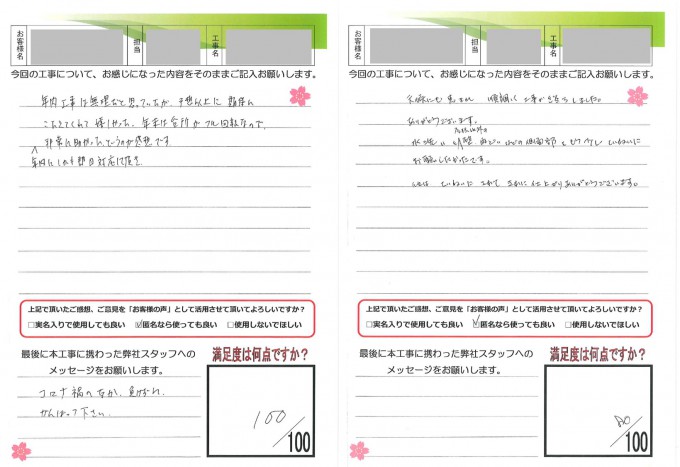 お客様名
担当
工事名
今回の工事について、お感じになった内容をそのままご記入お願いします。
年内工事は無理だと思っていたが、予想以上に
こたえてくれて嬉しかった。年末は台所がフル回転なので、
非常に助かったというのが感想です
年内にしかも即日対応は
上記で頂いたご感想、ご意見を「お客様の声」として活用させて頂いてよろしいですか？
□実名入りで使用しても良い ☑匿名なら使っても良い □使用しないでほしい
最後に本工事に携わった弊社スタッフへの
メッセージをお願いします。
コロナ禍のなか、負けずに
がんばって下さい。
満足度は何点ですか？
100/100
お客様名
担当
工事名
今回の工事について、お感じになった内容をそのままご記入お願いします。
天候にも恵まれ 順調に工事が
ありがとうございます。
もう少していねいに
お願いしたかったです。
ていねいに されて きれいに仕上がりありがとうございます。
上記で頂いたご感想、ご意見を「お客様の声」として活用させて頂いてよろしいですか？
□実名入りで使用しても良い ☑匿名なら使っても良い □使用しないでほしい
最後に本工事に携わった弊社スタッフへの
メッセージをお願いします。
満足度は何点ですか？
80/100